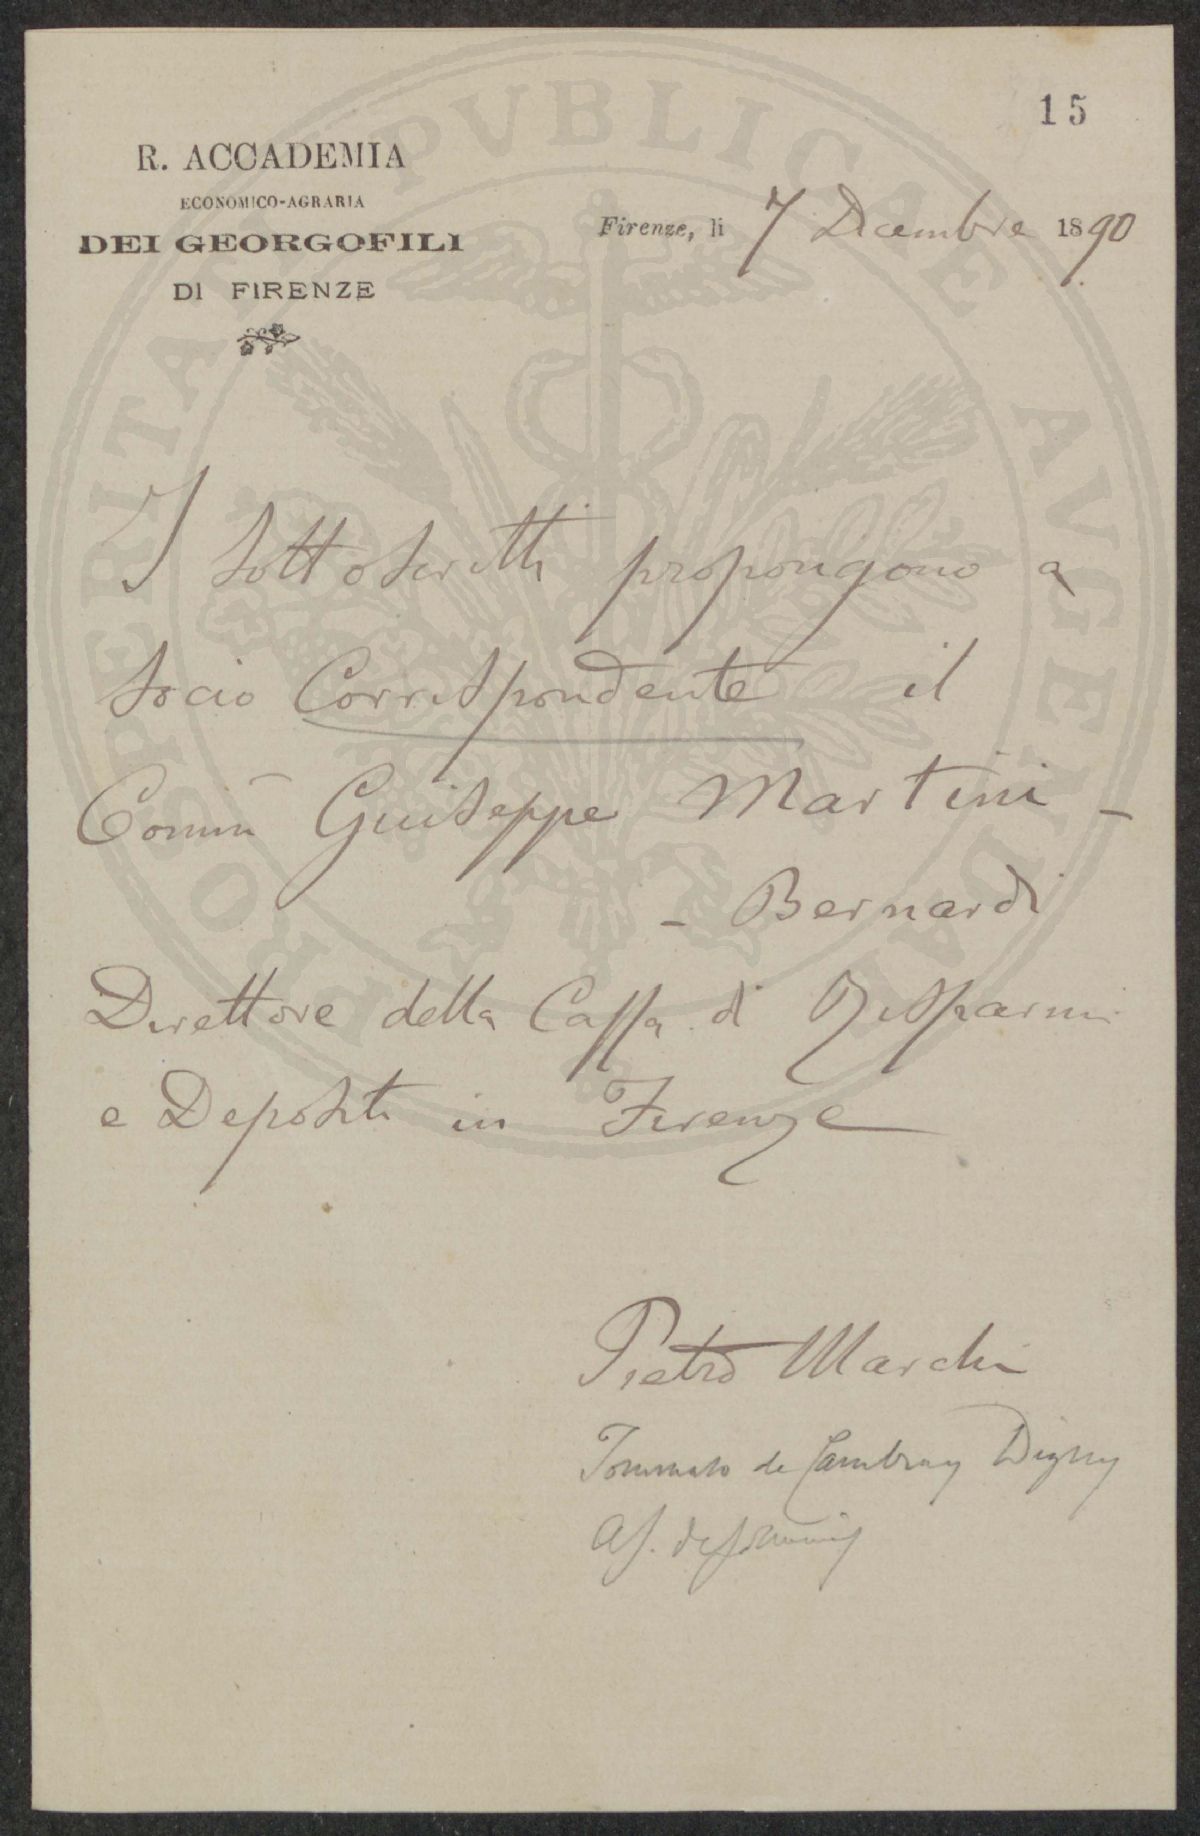 15
R. ACCADEMIA
ECONOMICO-AGRARIA
DEI GEORGOFILI
DI FIRENZE
Firenze, li 7 Dicembre 1890
I sottoscritti propongono a
socio Corrispondente il
Comm Giuseppe Martini -
- Bernardi
Direttore della Cassa di Risparmi
e Depositi in Firenze
Pietro Marchi
Tommaso de Cambray Digny
PROSPERITATI PVBLICAE AVGENDAE